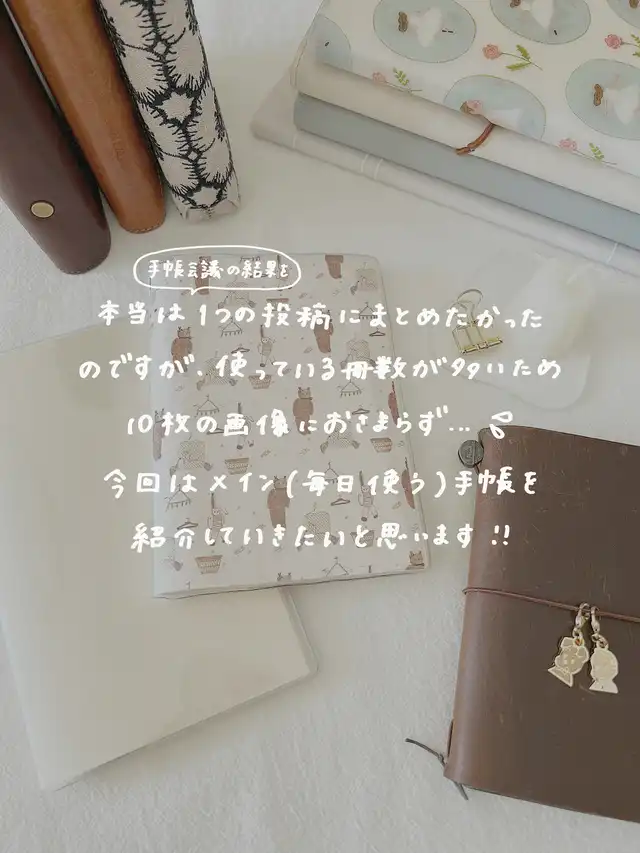 手帳会議の結果を
本当は1つの投稿にまとめたかった
のですが、使っている冊数が多いため
10枚の画像におさまらず...
今回はメイン(毎日使う)手帳を
紹介していきたいと思います!!